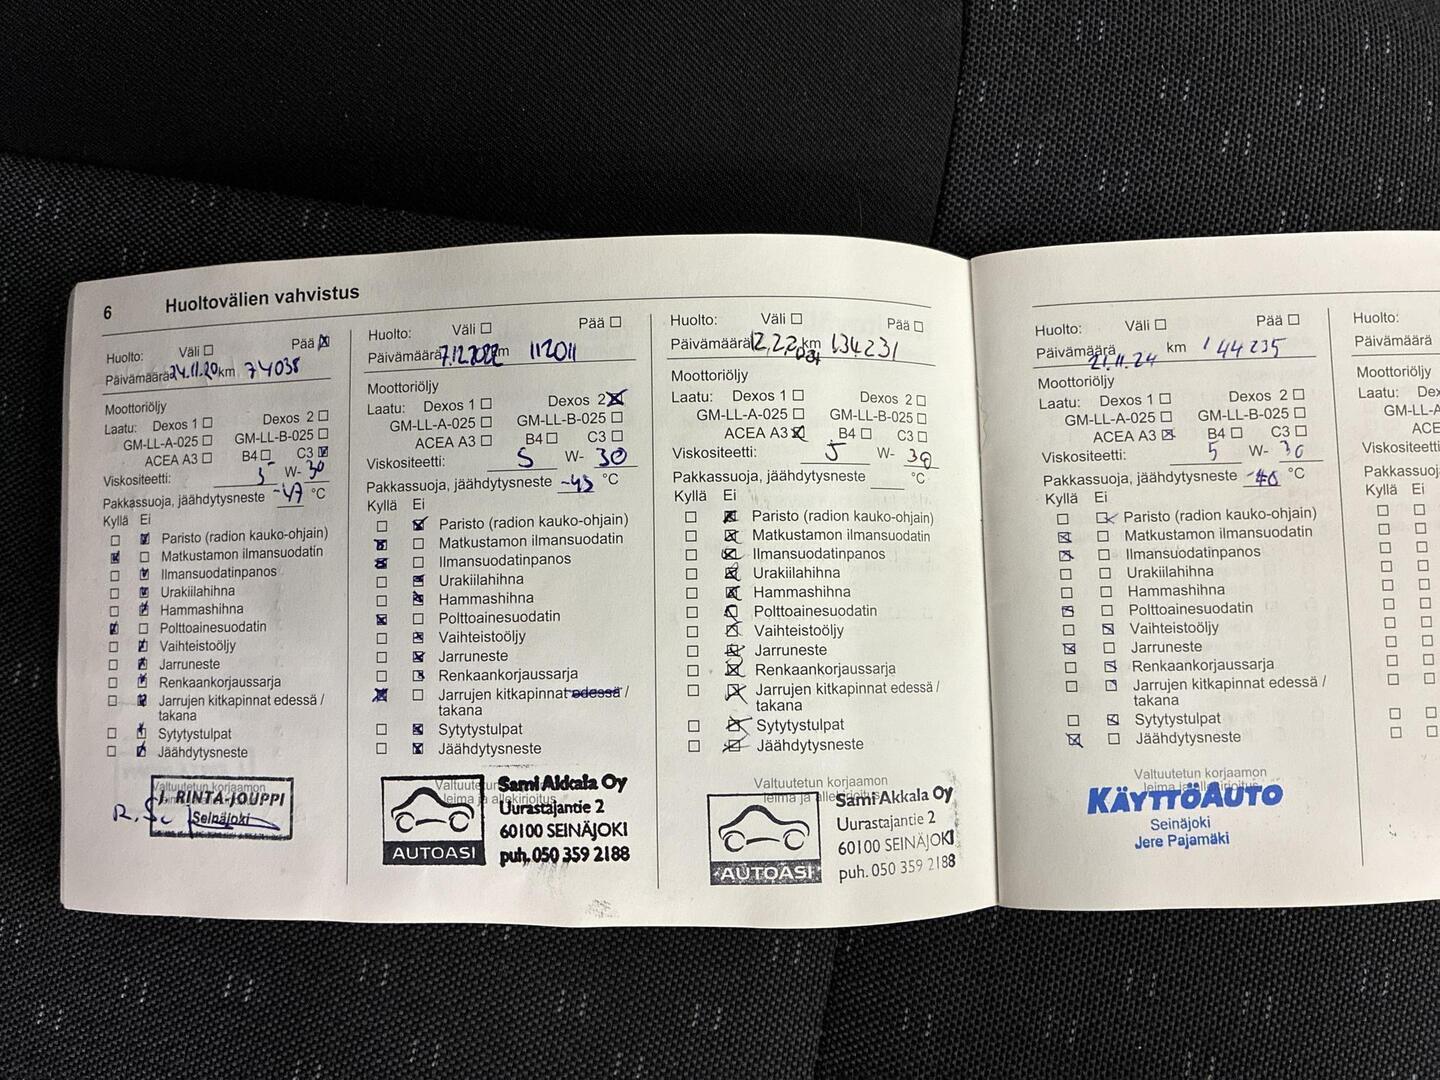 6 Huoltovälien vahvistus
Huolto: Väli Pää
Päivämäärä 24.11.20 km 74038
Moottoriöljy
Laatu: Dexos 1 Dexos 2
GM-LL-A-025 GM-LL-B-025
ACEA A3 B4 C3
Viskositeetti: 5 W- 30
Pakkassuoja, jäähdytysneste -47 °C
Kyllä Ei
Paristo (radion kauko-ohjain)
Matkustamon ilmansuodatin
Ilmansuodatinpanos
Urakiilahihna
Hammashihna
Polttoainesuodatin
Vaihteistoöljy
Jarruneste
Renkaankorjaussarja
Jarrujen kitkapinnat edessä /
takana
Sytytystulpat
Jäähdytysneste
J. RINTA-JOUPPI
Seinäjoki
Huolto: Väli Pää
Päivämäärä 7.12.2022 km 112011
Moottoriöljy
Laatu: Dexos 1 Dexos 2
GM-LL-A-025 GM-LL-B-025
ACEA A3 B4 C3
Viskositeetti: 5 W- 30
Pakkassuoja, jäähdytysneste °C
Kyllä Ei
Paristo (radion kauko-ohjain)
Matkustamon ilmansuodatin
Ilmansuodatinpanos
Urakiilahihna
Hammashihna
Polttoainesuodatin
Vaihteistoöljy
Jarruneste
Renkaankorjaussarja
Jarrujen kitkapinnat edessä /
takana
Sytytystulpat
Jäähdytysneste
Valtuutetun korjaamon
leima ja allekirjoitus
AUTOASI
Sami Akkala Oy
Uurastajantie 2
60100 SEINÄJOKI
puh. 050 359 2188
Huolto: Väli Pää
Päivämäärä km 134231
Moottoriöljy
Laatu: Dexos 1 Dexos 2
GM-LL-A-025 GM-LL-B-025
ACEA A3 B4 C3
Viskositeetti: 5 W- 30
Pakkassuoja, jäähdytysneste °C
Kyllä Ei
Paristo (radion kauko-ohjain)
Matkustamon ilmansuodatin
Ilmansuodatinpanos
Urakiilahihna
Hammashihna
Polttoainesuodatin
Vaihteistoöljy
Jarruneste
Renkaankorjaussarja
Jarrujen kitkapinnat edessä /
takana
Sytytystulpat
Jäähdytysneste
Valtuutetun korjaamon
leima ja allekirjoitus
AUTOASI
Sami Akkala Oy
Uurastajantie 2
60100 SEINÄJOKI
puh. 050 359 2188
Huolto: Väli Pää
Päivämäärä 21.11.24 km 144235
Moottoriöljy
Laatu: Dexos 1 Dexos 2
GM-LL-A-025 GM-LL-B-025
ACEA A3 B4 C3
Viskositeetti: 5 W- 30
Pakkassuoja, jäähdytysneste -40 °C
Kyllä Ei
Paristo (radion kauko-ohjain)
Matkustamon ilmansuodatin
Ilmansuodatinpanos
Urakiilahihna
Hammashihna
Polttoainesuodatin
Vaihteistoöljy
Jarruneste
Renkaankorjaussarja
Jarrujen kitkapinnat edessä /
takana
Sytytystulpat
Jäähdytysneste
Valtuutetun korjaamon
leima ja allekirjoitus
KÄYTTÖAUTO
Seinäjoki
Jere Pajamäki
Huolto:
Päivämäärä
Moottoriöljy
Laatu: De
GM-LL-A
ACE
Viskositeetti
Pakkassuoj
Kyllä Ei